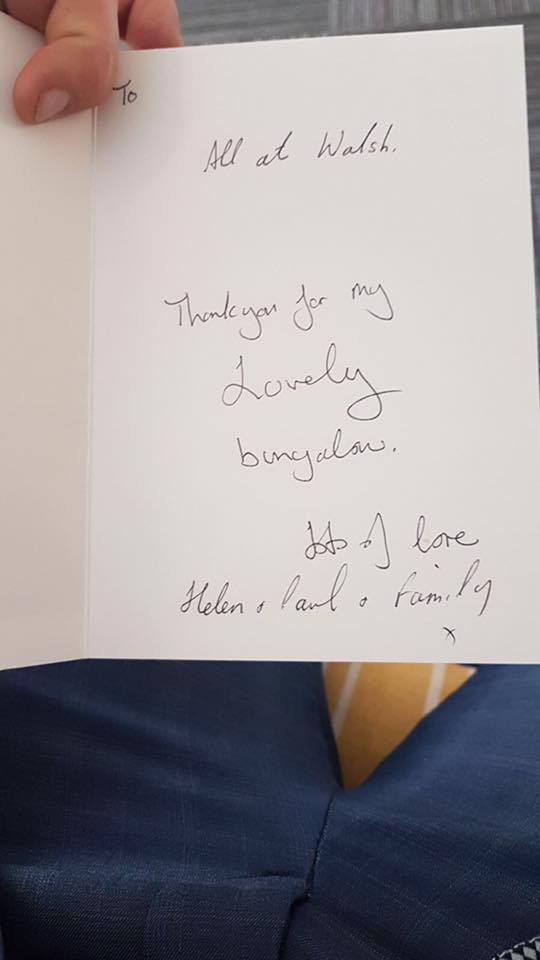 To
All at Walsh.
Thankyou for my
Lovely
bungalow.
lots of love
Helen & Paul & Family
x